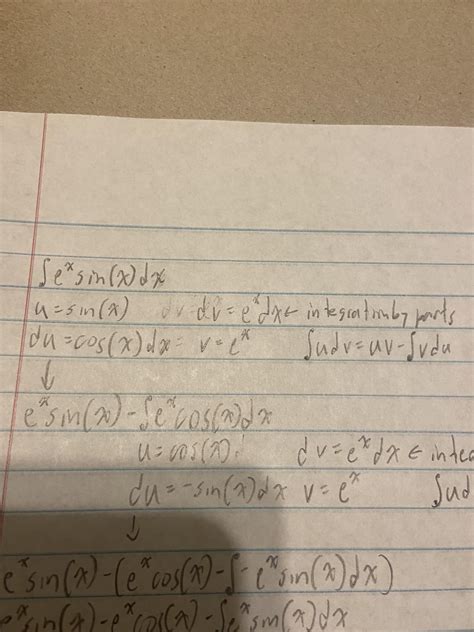 ∫e^x sin(x)dx
u=sin(x) dv dv=e^x dx ← integration by parts
du=cos(x)dx v=e^x ∫udv=uv-∫vdu
↓
e^x sin(x)-∫e^x cos(x)dx
u=cos(x) dv=e^x dx ←
du=-sin(x)dx v=e^x ∫ud
↓
e^x sin(x)-(e^x cos(x)-∫-e^x sin(x)dx)
e^x sin(x)-e^x cos(x)-∫e^x sin(x)dx